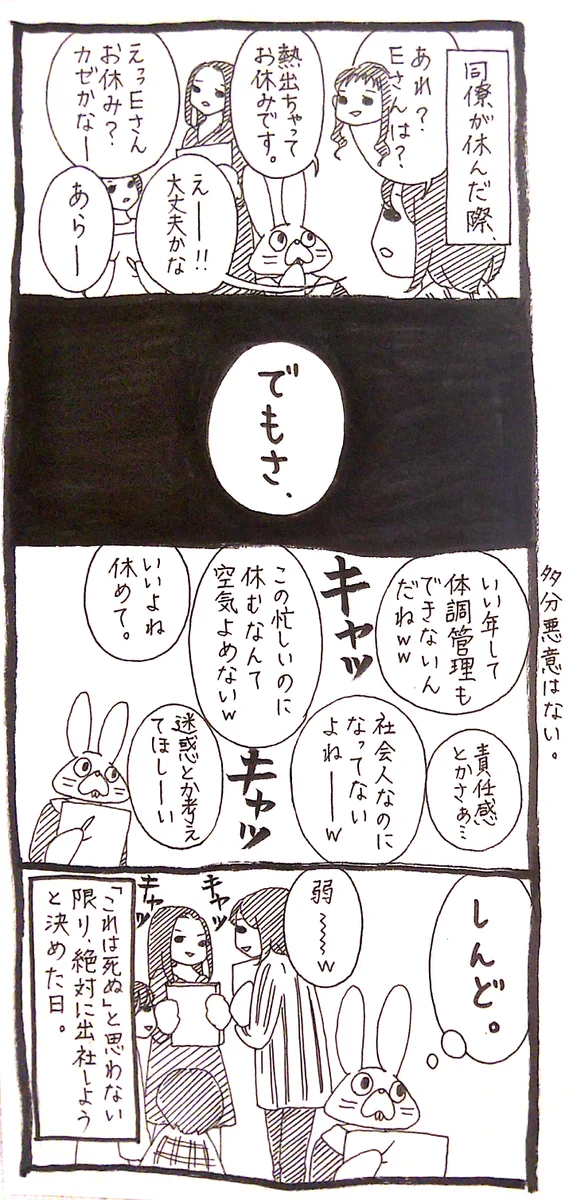 同僚が休んだ際、
あれ?
Eさんは?
熱出ちゃって
お休みです。
えっEさん
お休み?
カゼかなー
えー!!
大丈夫かな
あらー
でもさ、
いい年して
体調管理も
できないん
だねww
キャッ
この忙しいのに
休むなんて
空気よめないw
いいよね
休めて。
責任感
とかさぁ…
社会人なのに
なってない
よねーw
キャッ
迷惑とか考え
てほしーい
多分悪意はない。
しんど。
弱
〜〜w
キャッ
キャッ
「これは死ぬ」と思わない
限り、絶対に出社しよう
と決めた日。